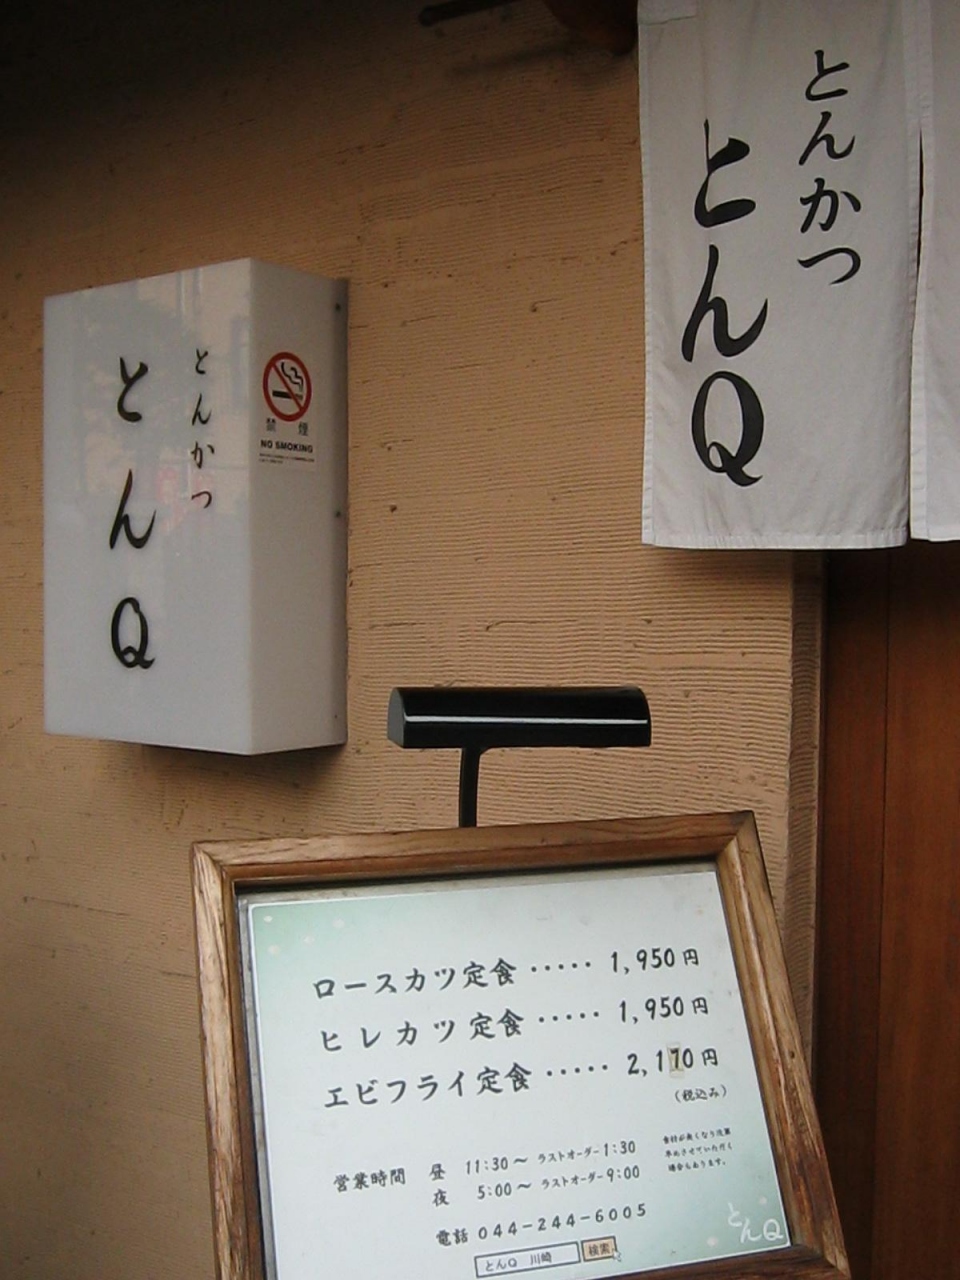 とんかつ
とんQ
とんかつ
とんQ
禁煙
NO SMOKING
ロースカツ定食・・・・・1,950円
ヒレカツ定食・・・・・1,950円
エビフライ定食・・・・・2,170円
（税込み）
営業時間 昼 11:30〜ラストオーダー1:30
夜 5:00〜ラストオーダー9:00
食材が無くなり次第
早めさせていただく
場合もあります。
電話 044-244-6005
とんQ 川崎 検索
とんQ